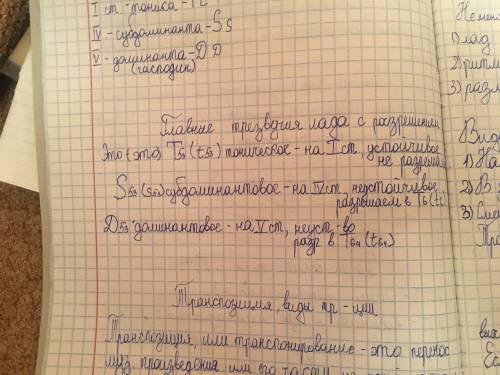 I ст. - тоника - T t
IV - субдоминанта - S s
V - доминанта - D D
(господин)
Главные трезвучия лада с разрешением
Это (это) T53 (t53) тоническое - на I ст, устойчивое
не разреш
S53 (s53) субдоминантовое - на IV ст, неустойчивое,
разрешаем в T6 (t6
D53 доминантовое - на V ст, неуст-во
разр в T64 (t64)
Транспозиция, виды тр - ции.
Транспозиция, или транспонирование - это перенос
муз. произведения или его части из
1) лад
2) ритм
3) разм
Вид
1) На
2) В
3) Сме